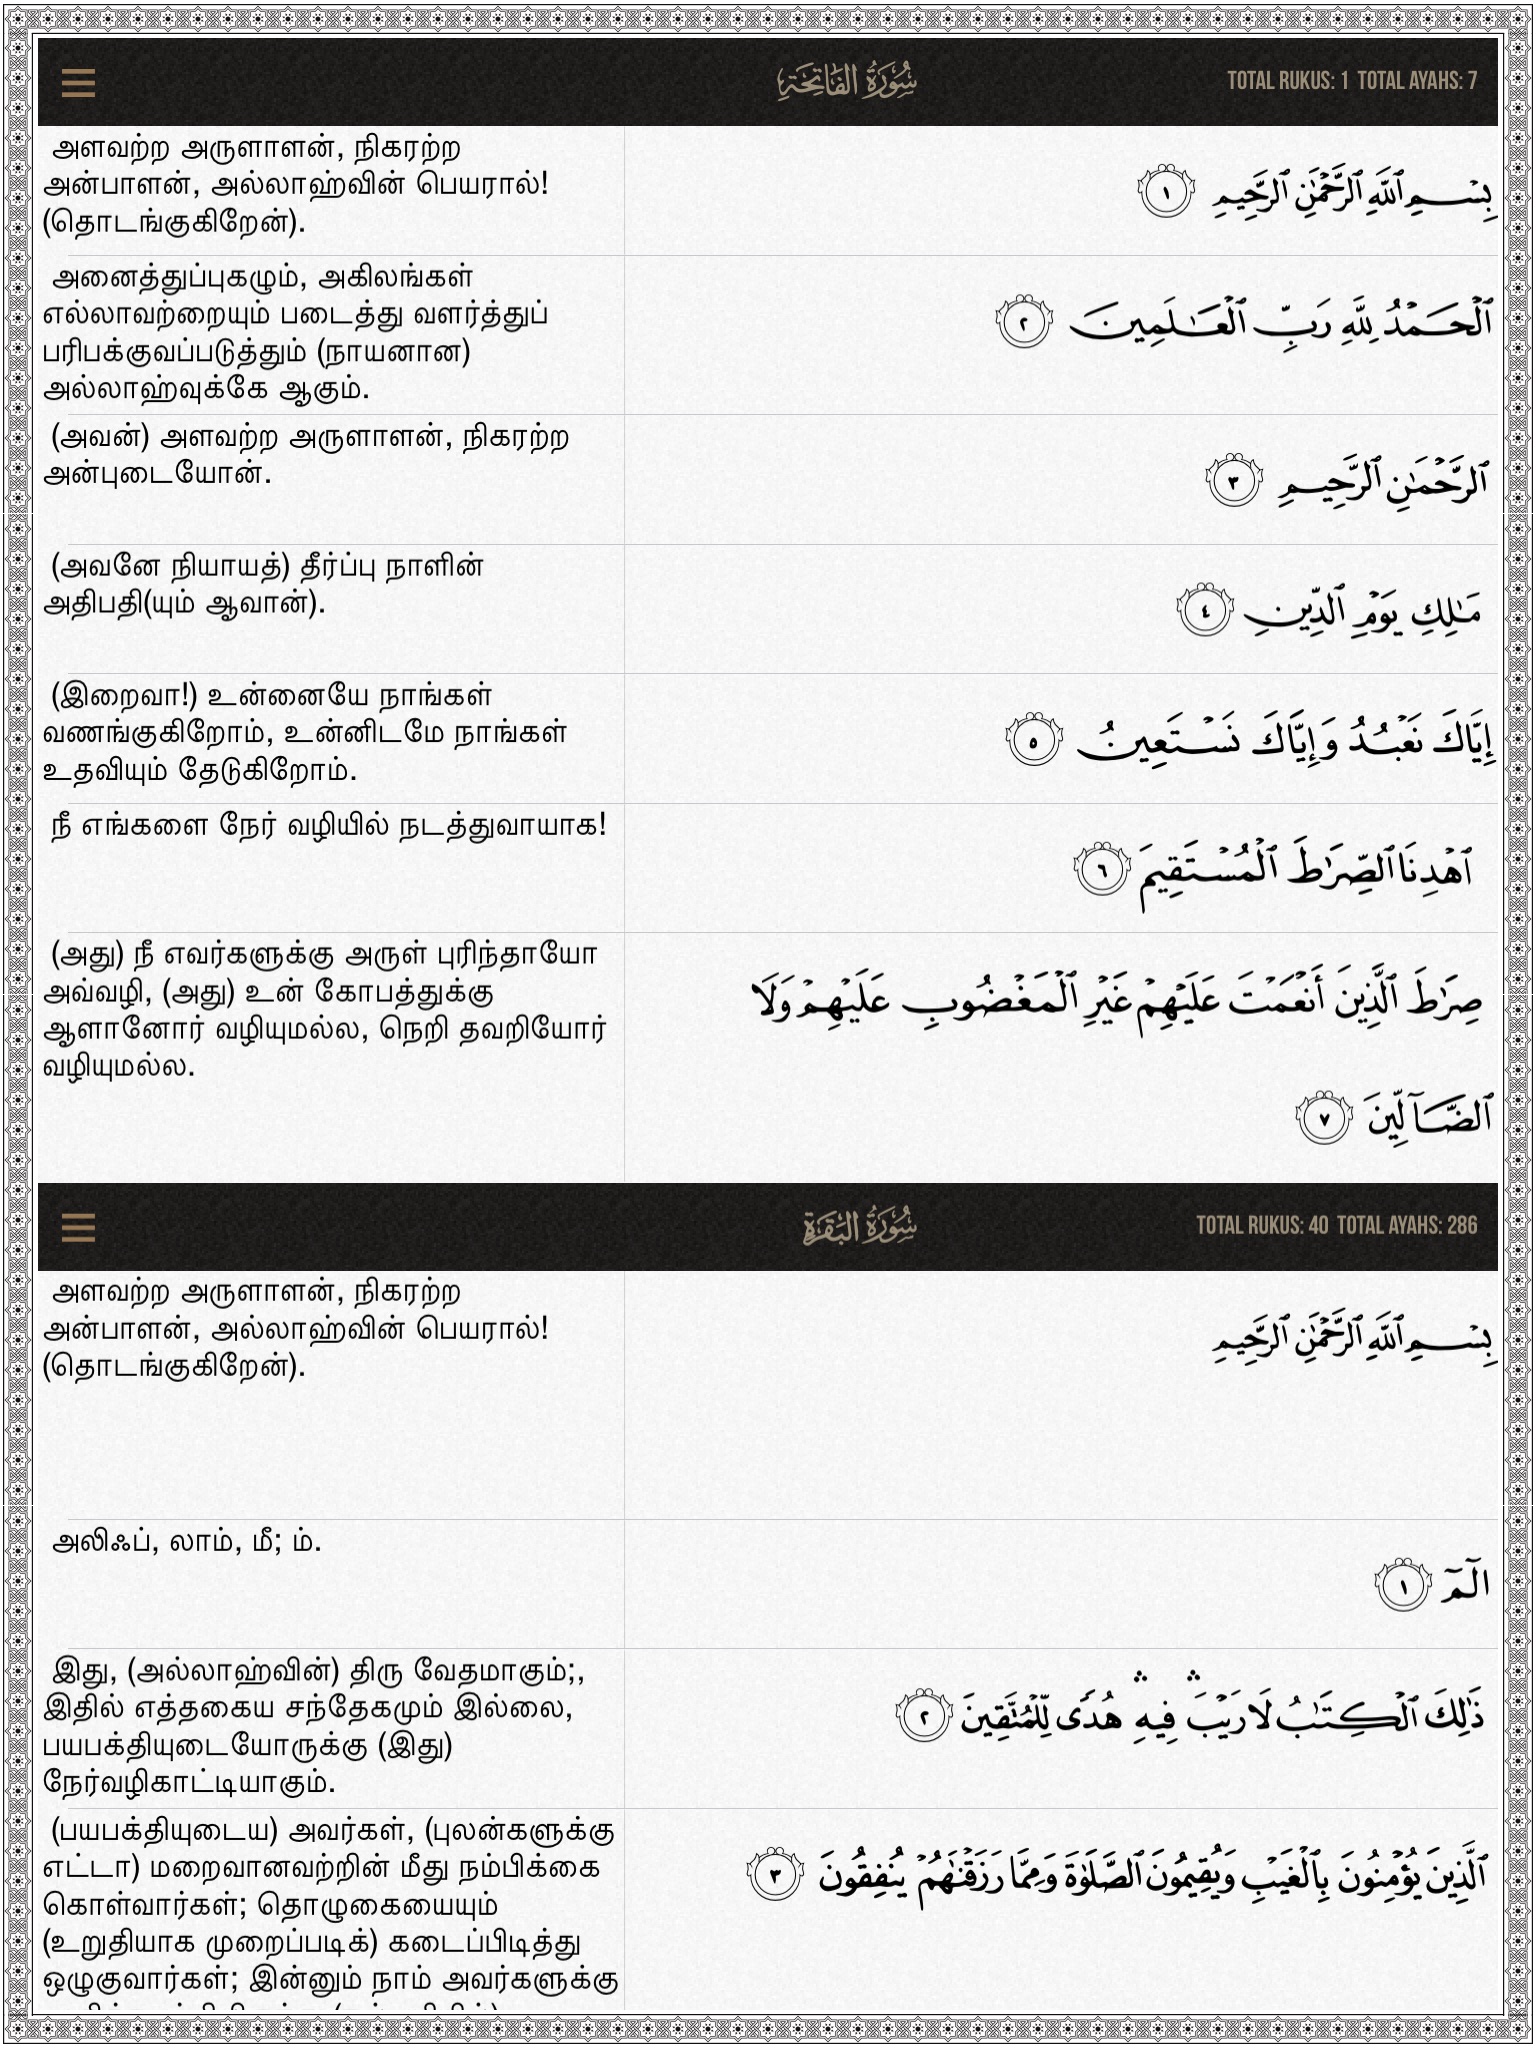 سُورَةُ الفَاتِحَةِ
TOTAL RUKUS: 1 TOTAL AYAHS: 7
அளவற்ற அருளாளன், நிகரற்ற
அன்பாளன், அல்லாஹ்வின் பெயரால்!
(தொடங்குகிறேன்).
بِسْمِ ٱللَّهِ ٱلرَّحْمَٰنِ ٱلرَّحِيمِ ١
அனைத்துப்புகழும், அகிலங்கள்
எல்லாவற்றையும் படைத்து வளர்த்துப்
பரிபக்குவப்படுத்தும் (நாயனான)
அல்லாஹ்வுக்கே ஆகும்.
ٱلْحَمْدُ لِلَّهِ رَبِّ ٱلْعَٰلَمِينَ ٢
(அவன்) அளவற்ற அருளாளன், நிகரற்ற
அன்புடையோன்.
ٱلرَّحْمَٰنِ ٱلرَّحِيمِ ٣
(அவனே நியாயத்) தீர்ப்பு நாளின்
அதிபதி(யும் ஆவான்).
مَٰلِكِ يَوْمِ ٱلدِّينِ ٤
(இறைவா!) உன்னையே நாங்கள்
வணங்குகிறோம், உன்னிடமே நாங்கள்
உதவியும் தேடுகிறோம்.
إِيَّاكَ نَعْبُدُ وَإِيَّاكَ نَسْتَعِينُ ٥
நீ எங்களை நேர் வழியில் நடத்துவாயாக!
ٱهْدِنَا ٱلصِّرَٰطَ ٱلْمُسْتَقِيمَ ٦
(அது) நீ எவர்களுக்கு அருள் புரிந்தாயோ
அவ்வழி, (அது) உன் கோபத்துக்கு
ஆளானோர் வழியுமல்ல, நெறி தவறியோர்
வழியுமல்ல.
صِرَٰطَ ٱلَّذِينَ أَنْعَمْتَ عَلَيْهِمْ غَيْرِ ٱلْمَغْضُوبِ عَلَيْهِمْ وَلَا
ٱلضَّآلِّينَ ٧
سُورَةُ البَقَرَةِ
TOTAL RUKUS: 40 TOTAL AYAHS: 286
அளவற்ற அருளாளன், நிகரற்ற
அன்பாளன், அல்லாஹ்வின் பெயரால்!
(தொடங்குகிறேன்).
بِسْمِ ٱللَّهِ ٱلرَّحْمَٰنِ ٱلرَّحِيمِ
அலிஃப், லாம், மீ; ம்.
الٓمٓ ١
இது, (அல்லாஹ்வின்) திரு வேதமாகும்;,
இதில் எத்தகைய சந்தேகமும் இல்லை,
பயபக்தியுடையோருக்கு (இது)
நேர்வழிகாட்டியாகும்.
ذَٰلِكَ ٱلْكِتَٰبُ لَا رَيْبَ ۛ فِيهِ ۛ هُدًى لِّلْمُتَّقِينَ ٢
(பயபக்தியுடைய) அவர்கள், (புலன்களுக்கு
எட்டா) மறைவானவற்றின் மீது நம்பிக்கை
கொள்வார்கள்; தொழுகையையும்
(உறுதியாக முறைப்படிக்) கடைப்பிடித்து
ஒழுகுவார்கள்; இன்னும் நாம் அவர்களுக்கு
ٱلَّذِينَ يُؤْمِنُونَ بِٱلْغَيْبِ وَيُقِيمُونَ ٱلصَّلَوٰةَ وَمِمَّا رَزَقْنَٰهُمْ يُنفِقُونَ ٣